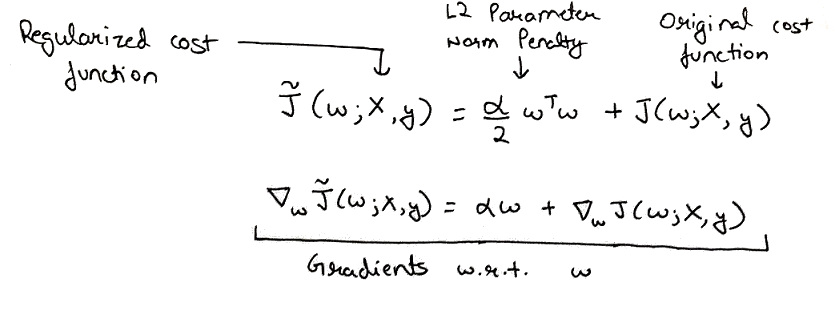 Regularized cost function
L2 Parameter Norm Penalty
Original cost function
J̃(ω;X,y) = α/2 ωᵀω + J(ω;X,y)
∇ω J̃(ω;X,y) = αω + ∇ω J(ω;X,y)
Gradients w.r.t. ω